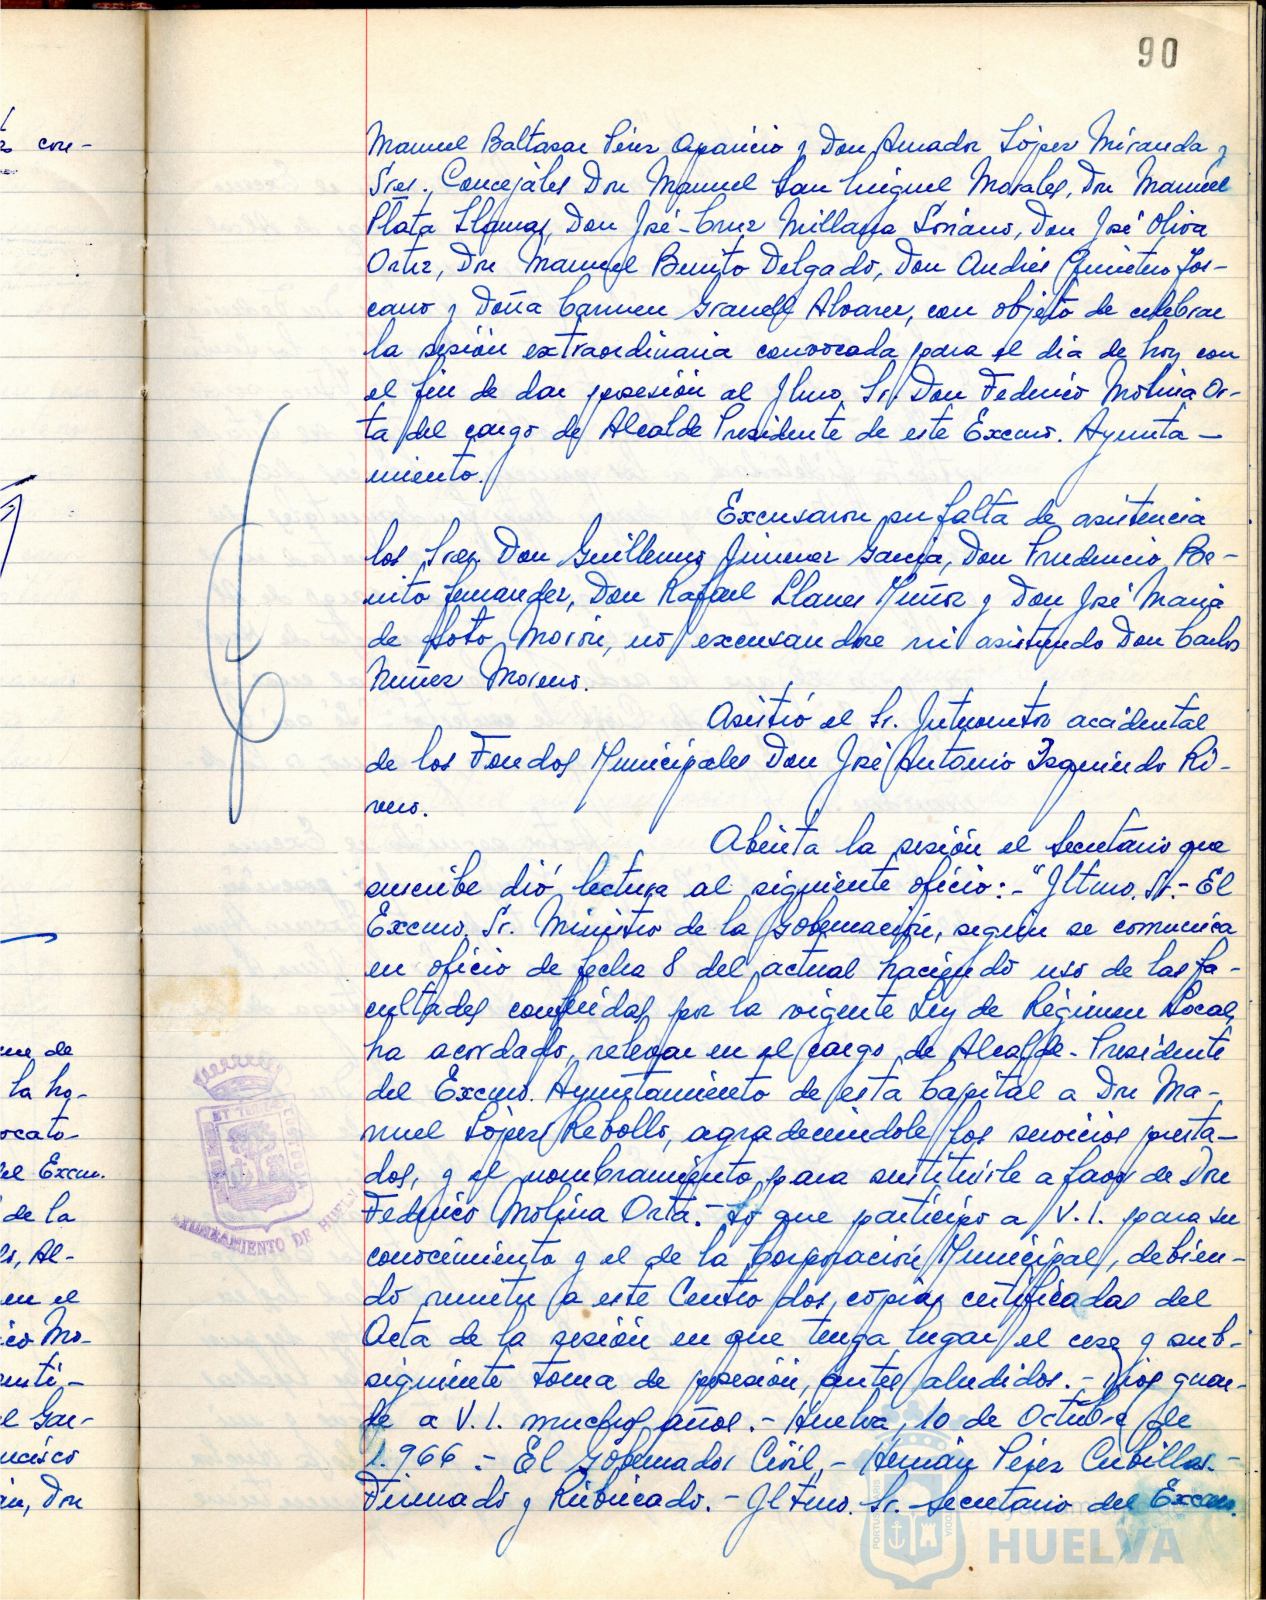 90
Manuel Baltasar Pérez Aparicio y Don Amador López Miranda y
Sres. Concejales Don Manuel San Miguel Morales, Don Manuel
Plata Llamas, Don José-Cruz Millana Soriano, Don José Oliva
Ortiz, Don Manuel Benito Delgado, Don Andrés Quintero Tos-
cano y Doña Carmen Grandt Alvarez, con objeto de celebrar
la sesión extraordinaria convocada para el dia de hoy con
el fin de dar posesión al Ilmo. Sr. Don Federico Molina Or-
ta del cargo de Alcalde Presidente de este Excmo. Ayunta-
miento.
Excusaron su falta de asistencia
los Sres. Don Guillermo Jimenez Garcia, Don Prudencio Be-
nito Fernandez, Don Rafael Llanes Muñoz y Don José Maria
de Soto Morón, no excusandose ni asistiendo Don Carlos
Nuñez Moreno.
Asistió el Sr. Interventor accidental
de los Fondos Municipales Don José Antonio Izquierdo Ri-
vero.
Abierta la sesión el Secretario que
suscribe dió lectura al siguiente oficio:-"Iltmo. Sr.- El
Excmo. Sr. Ministro de la Gobernación, según se comunica
en oficio de fecha 8 del actual haciendo uso de las fa-
cultades conferidas por la vigente Ley de Régimen Local,
ha acordado, relevar en el cargo de Alcalde-Presidente
del Excmo. Ayuntamiento de esta Capital a Don Ma-
nuel López Rebollo, agradeciendole los servicios presta-
dos, y el nombramiento para sustituirle a favor de Don
Federico Molina Orta.- Lo que participo a V.I. para su
conocimiento y el de la Corporación Municipal, debien-
do remitir a este Centro dos copias certificadas del
Acta de la sesión en que tenga lugar el cese y sub-
siguiente toma de posesión, antes aludidos.- Dios guar-
de a V.I. muchos años.- Huelva, 10 de Octubre de
1.966.- El Gobernador Civil,- Hernán Pérez Cubillas.-
Firmado y Rubricado.- Iltmo. Sr. Secretario del Excmo.
con-
de
la ho-
ocato-
el Excm.
de la
Al-
en el
Mo-
Don
AYUNTAMIENTO DE HUELVA
HUELVA